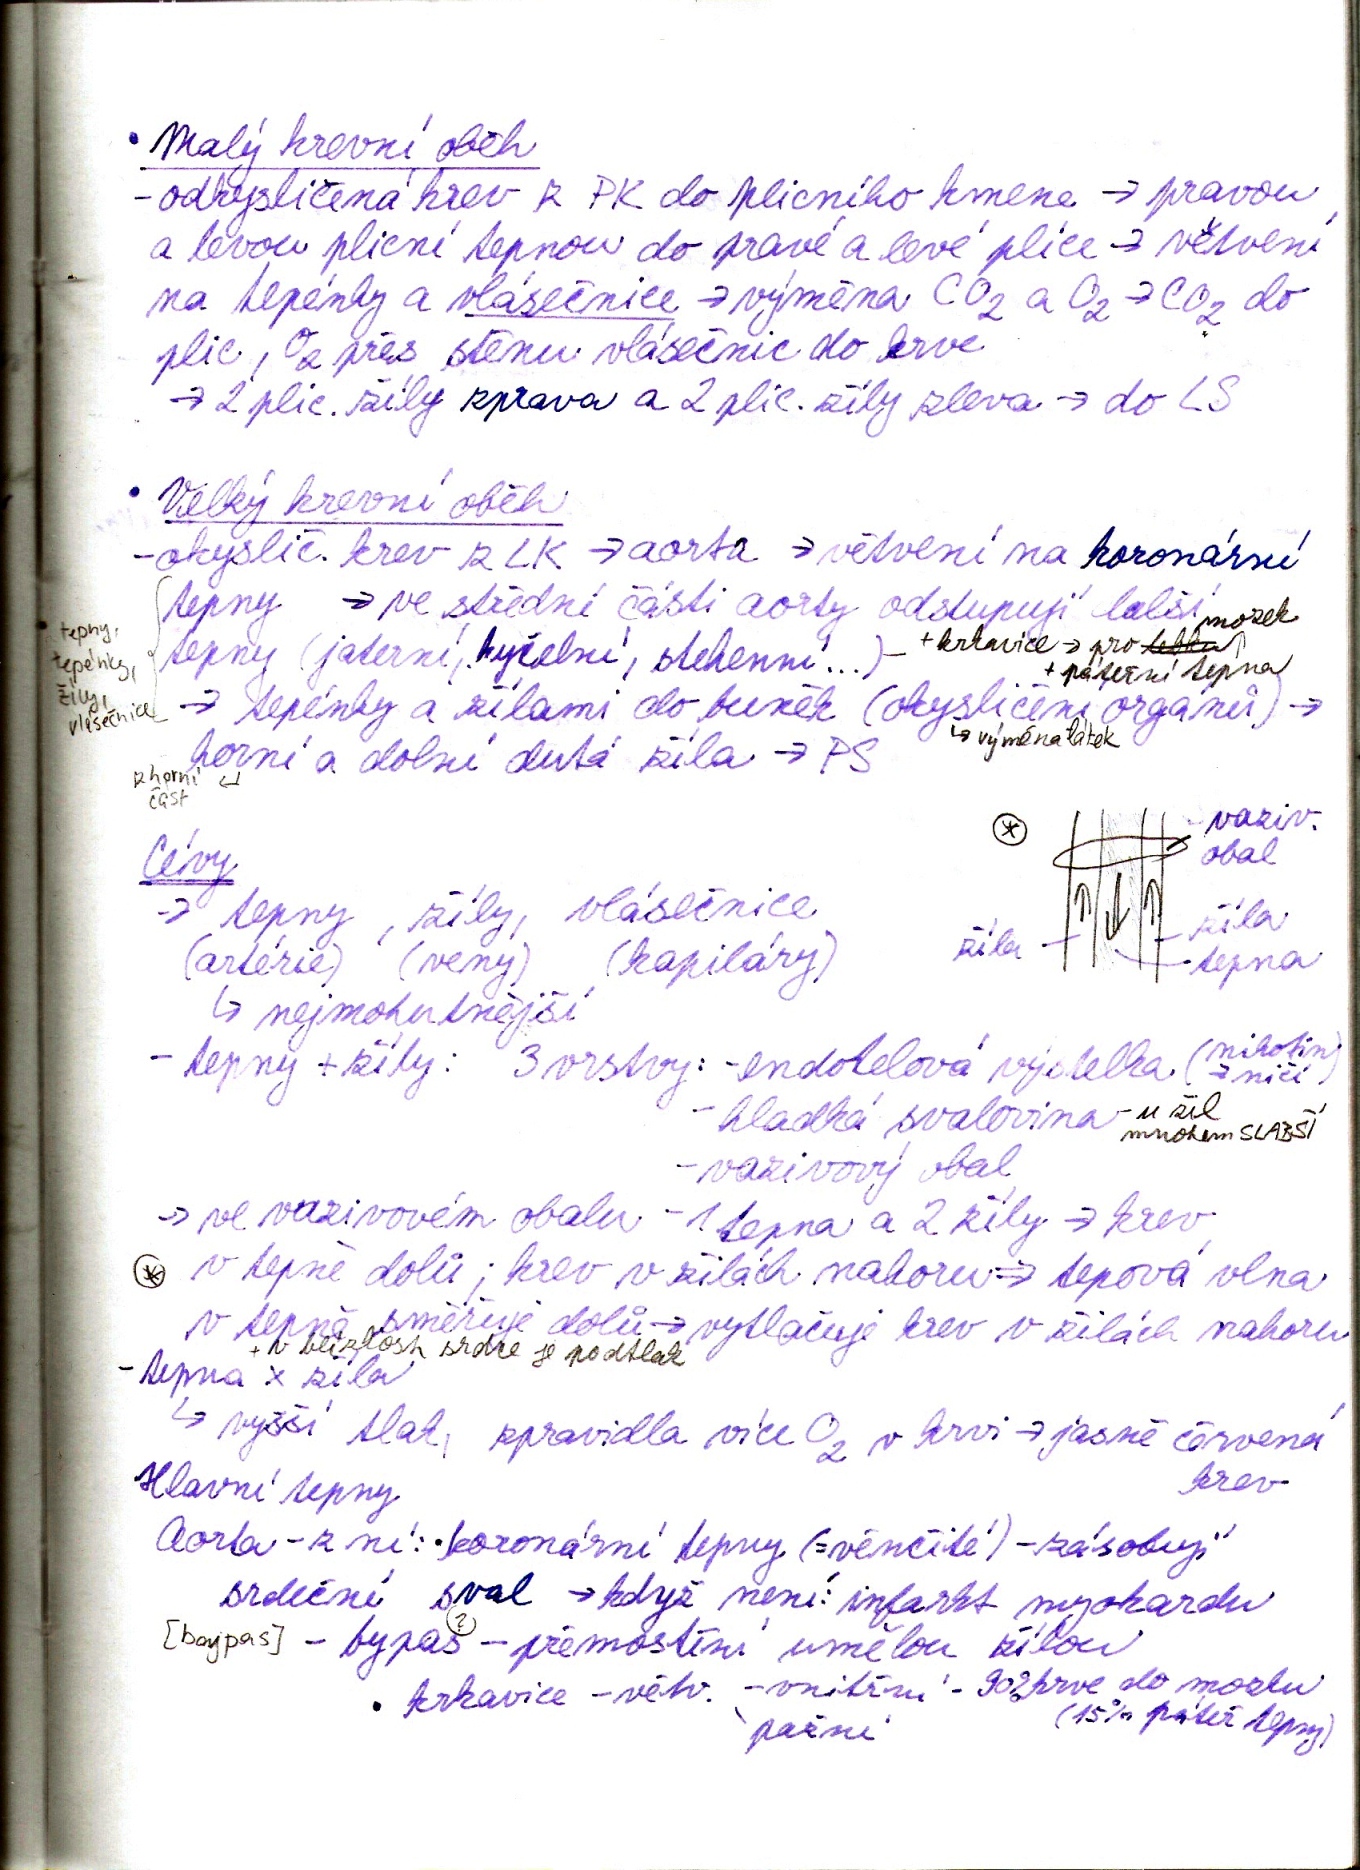 • Malý krevní oběh
- odkysličená krev z PK do plicního kmene → pravou
a levou plicní tepnou do pravé a levé plíce → větvení
na tepénky a vlásečnice → výměna CO2 a O2 → CO2 do
plic, O2 přes stěnu vlásečnic do krve
→ 2 plic. žíly zprava a 2 plic. žíly zleva → do LS
• Velký krevní oběh
- okyslič. krev z LK → aorta → větvení na koronární
tepny → ve střední části aorty odstupují další
tepny (jaterní, kyčelní, stehenní...) - + krkavice → pro mozek
+ páteřní tepna
tepny,
tepénky,
žíly,
vlásečnice
→ tepénky a žílami do buněk (okysličení orgánů) →
↳ výměna látek
horní a dolní dutá žíla → PS
z horní
část
Cévy
→ tepny, žíly, vlásečnice
(artérie) (veny) (kapiláry)
↳ nejmohutnější
* - vaziv.
obal
žíla - - žíla
tepna
- tepny + žíly: 3 vrstvy: - endotelová výstelka (nikotin
→ ničí)
- hladká svalovina - u žil
mnohem SLABŠÍ
- vazivový obal
→ ve vazivovém obalu - 1 tepna a 2 žíly → krev
* v tepně dolů; krev v žilách nahoru ⇒ tepová vlna
v tepně směřuje dolů → vytlačuje krev v žilách nahoru
+ v blízkosti srdce je podtlak
- tepna x žíla
↳ vyšší tlak, zpravidla více O2 v krvi → jasně červená
krev
Hlavní tepny
Aorta - z ní: • koronární tepny (=věnčité) - zásobují
srdeční sval → když není: infarkt myokardu
[bajpas] - bypas (?) - přemostění umělou žílou
• krkavice - větv. - vnitřní - krve do mozku
(15% páteř. tepny)